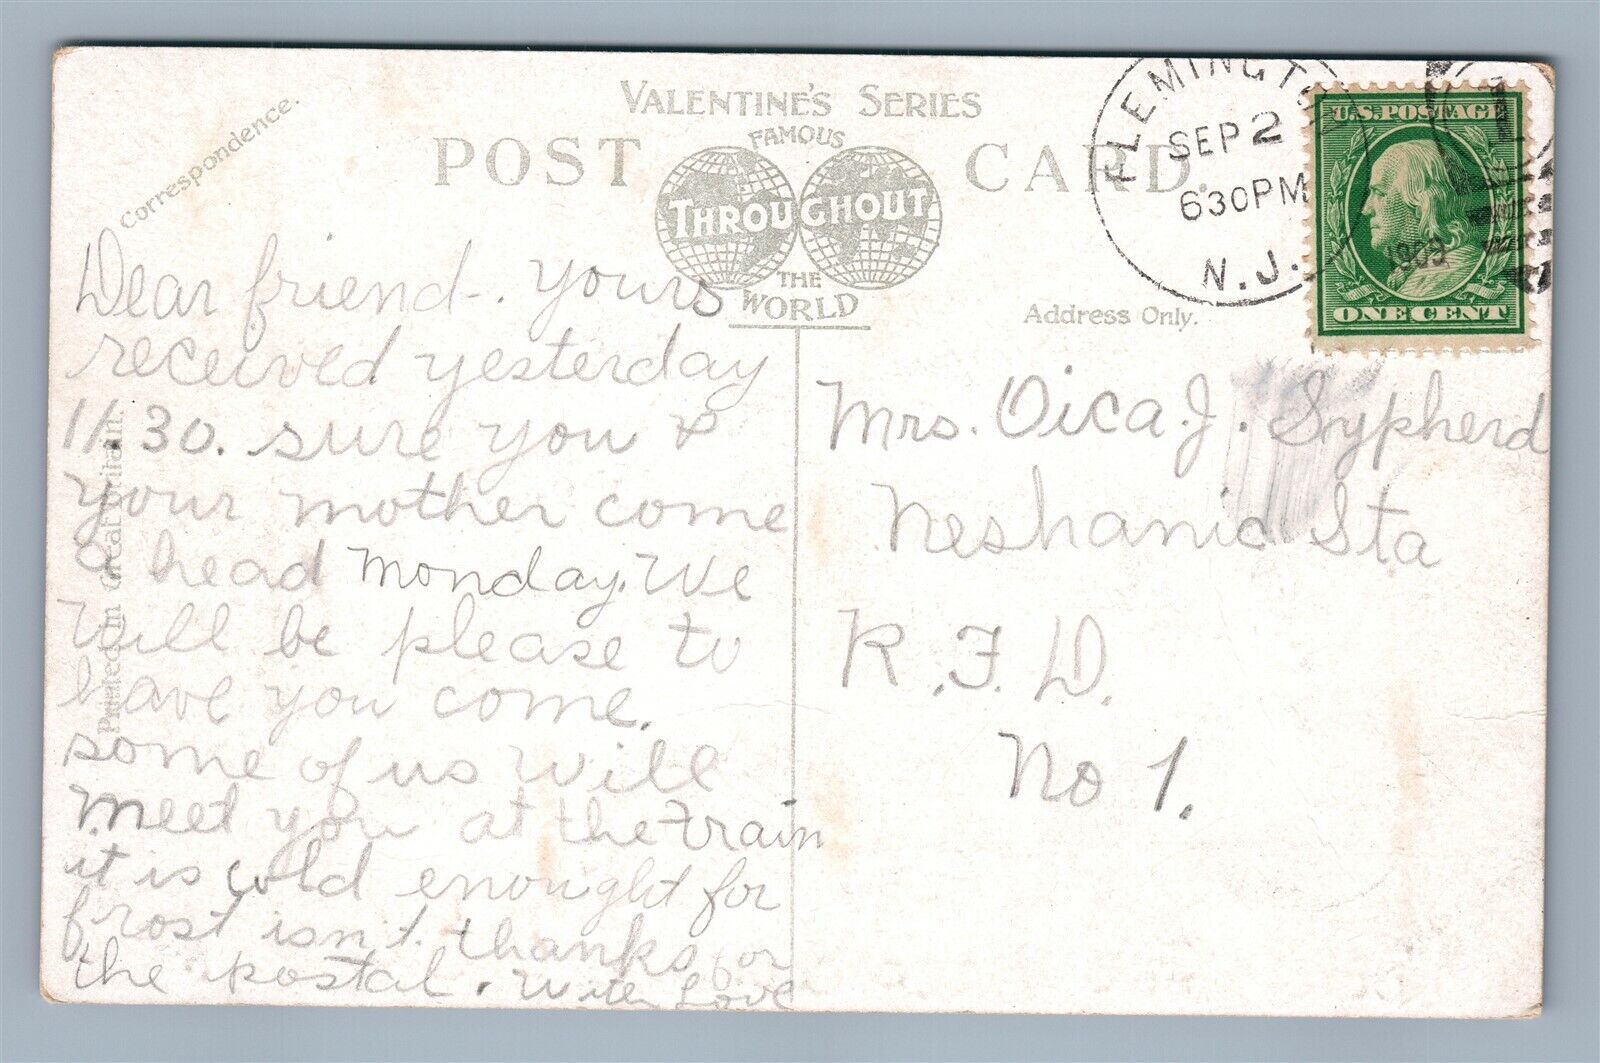 Correspondence.
VALENTINE'S SERIES
FAMOUS
POST CARD.
THROUGHOUT
THE
WORLD
Printed in Great Britain.
FLEMINGTON
SEP 2
630PM
N.J.
1909
U.S. POSTAGE
ONE CENT
Address Only.
Dear friend-. yours
received yesterday
11.30. sure you &
your mother come
a head Monday. We
Will be please to
have you come.
some of us will
Meet you at the train
it is cold enought for
frost isn't. thanks for
the postal. With Love
Mrs. Oica J. Sypherd
Neshanic Sta
R.F.D.
No 1.